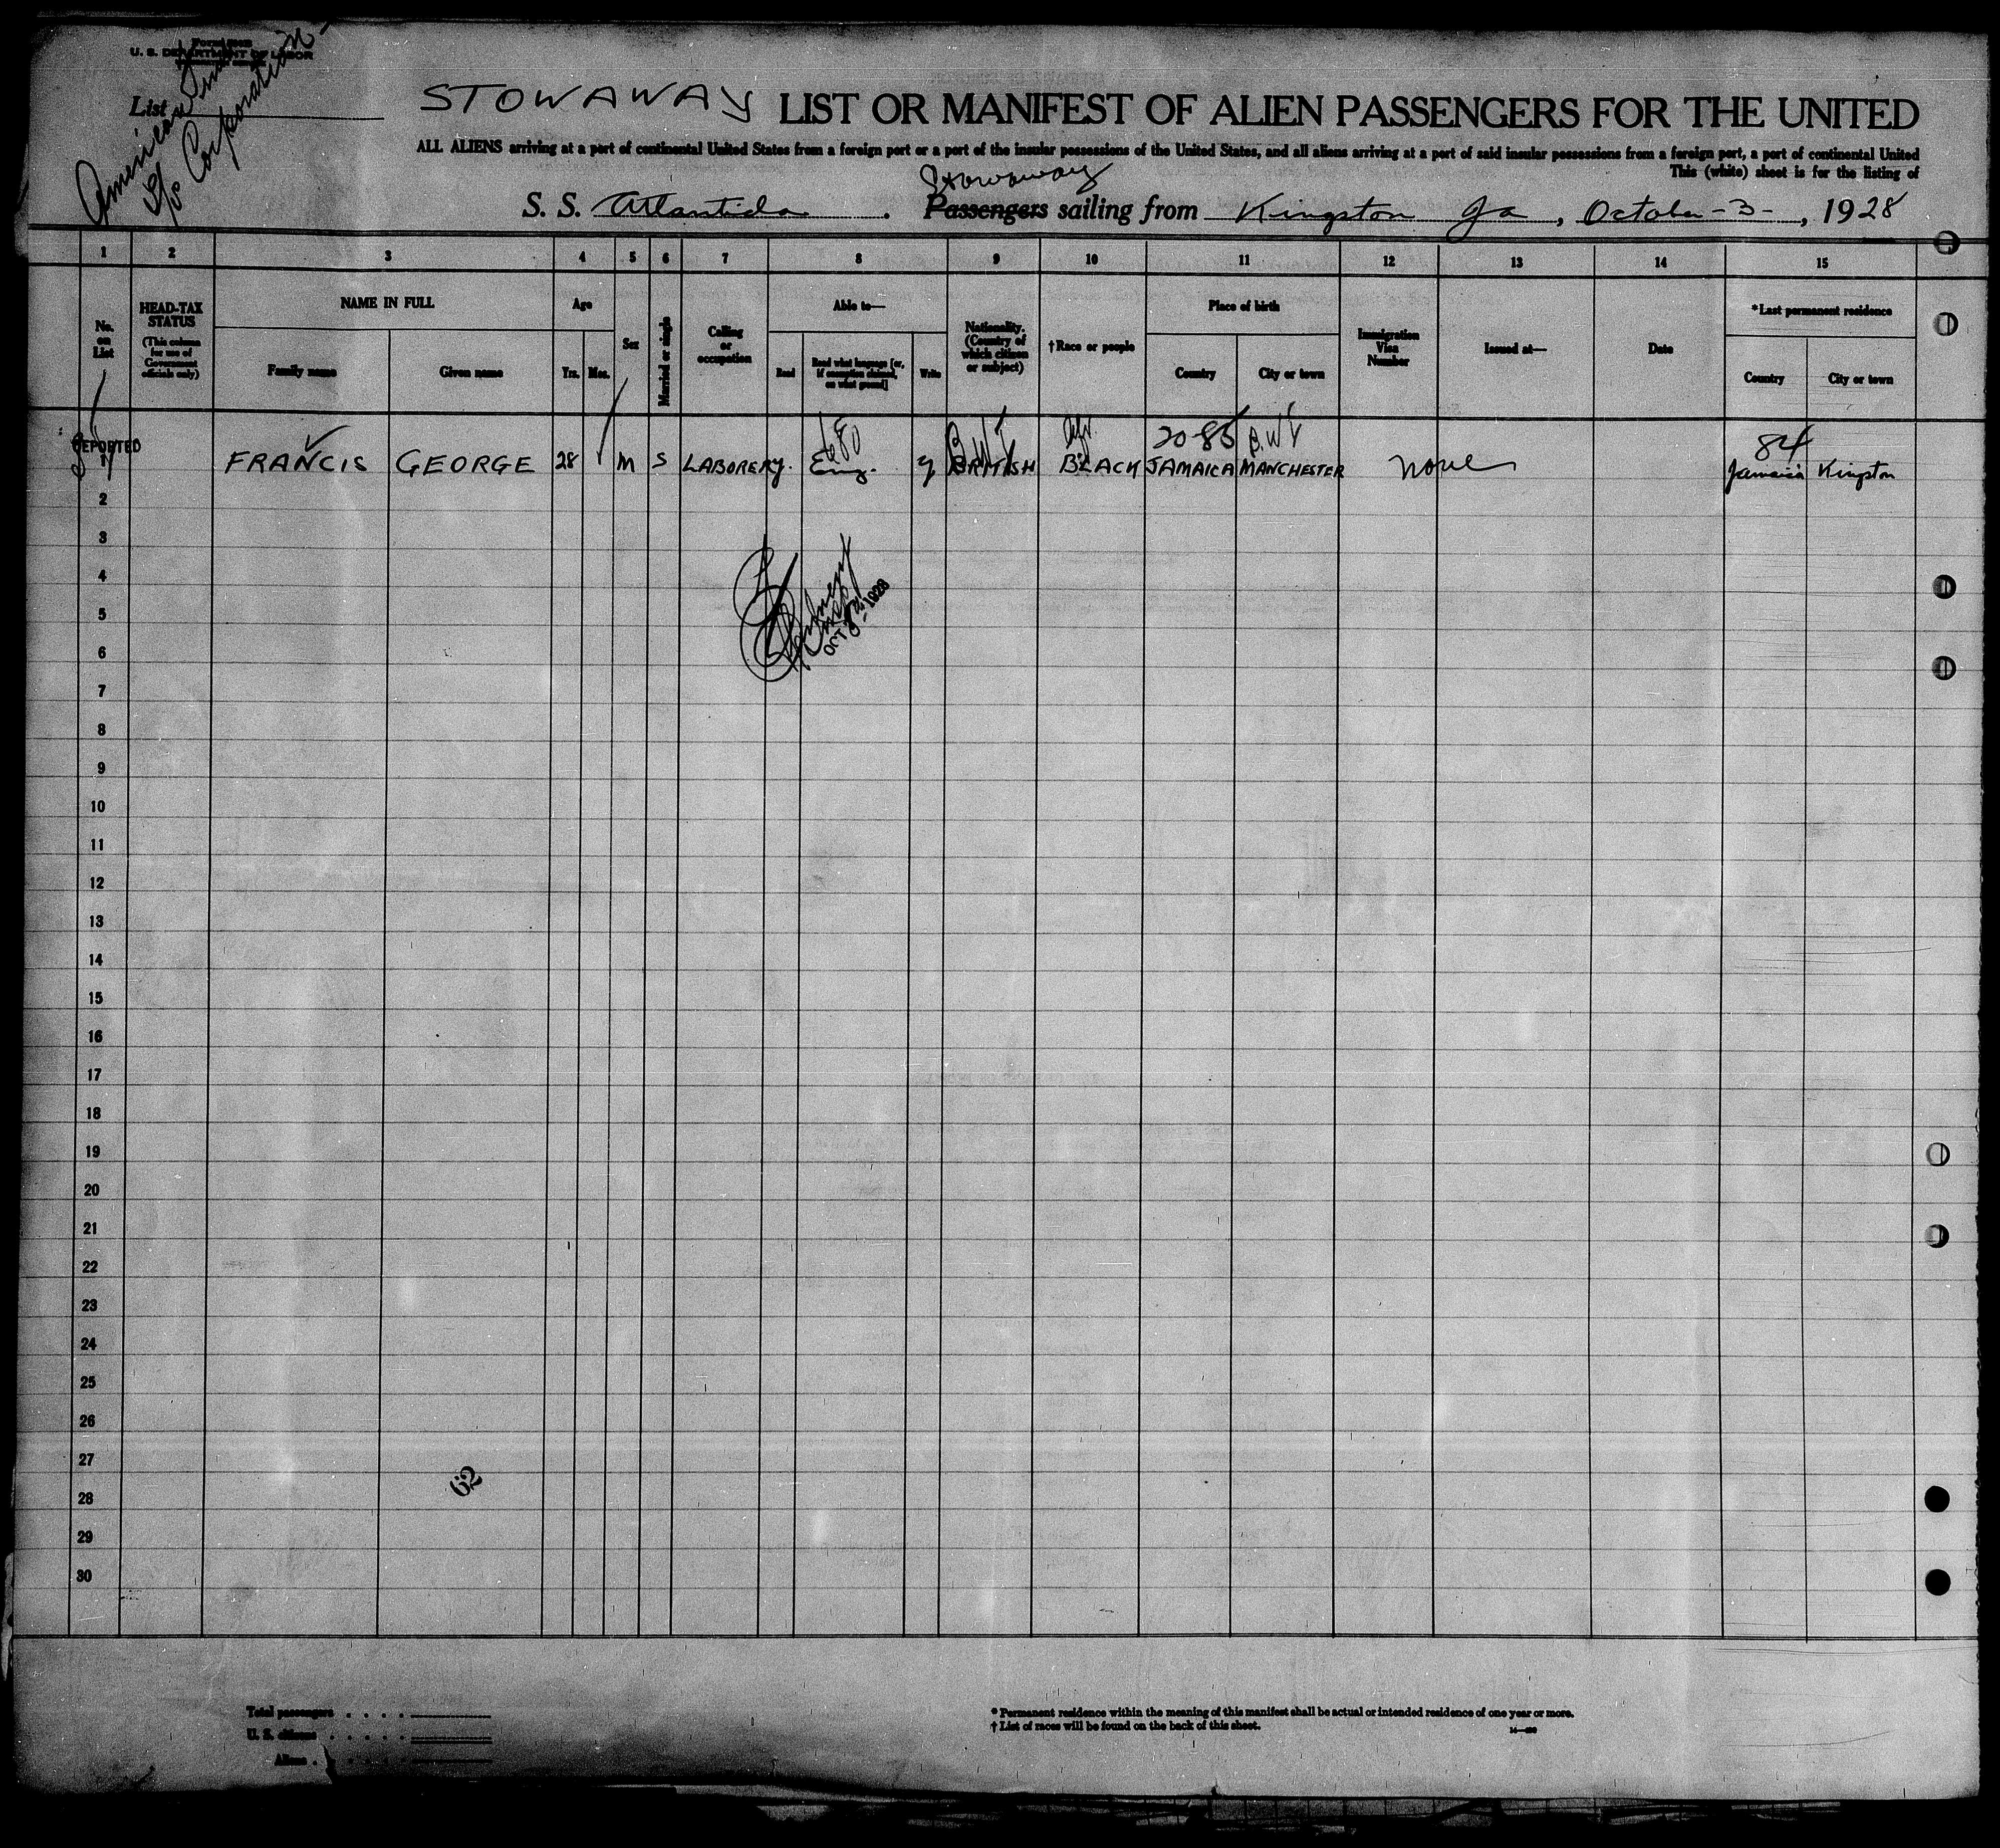 U. S. DEPARTMENT OF LABOR
List
American Fruit
S/S Corporation
STOWAWAY LIST OR MANIFEST OF ALIEN PASSENGERS FOR THE UNITED
ALL ALIENS arriving at a port of continental United States from a foreign port or a port of the insular possessions of the United States, and all aliens arriving at a port of said insular possessions from a foreign port, a port of continental United
This (white) sheet is for the listing of
Stowaway
S. S. Atlantida . Passengers sailing from Kingston Ja , October - 3 - , 1928
1 2 3 4 5 6 7 8 9 10 11 12 13 14 15
No. on List
HEAD-TAX STATUS
(This column for use of Government officials only)
NAME IN FULL
Family name
Given name
Age
Yrs.
Mos.
Sex
Married or single
Calling or occupation
Able to—
Read
Read what language [or, if exemption claimed, on what ground]
Write
Nationality. (Country of which citizen or subject)
†Race or people
Place of birth
Country
City or town
Immigration Visa Number
Issued at—
Date
*Last permanent residence
Country
City or town
680 B.W.I. Afr. 20-85 B.W.I 84
DEPORTED
1 FRANCIS GEORGE 28 M S LABORER y. Eng. y BRITISH BLACK JAMAICA MANCHESTER None Jamaica Kingston
2
3
4
5
OCT 1928
6
7
8
9
10
11
12
13
14
15
16
17
18
19
20
21
22
23
24
25
26
27
62
28
29
30
Total passengers . . . .
U. S. citizens . . . . .
Aliens . . . . .
* Permanent residence within the meaning of this manifest shall be actual or intended residence of one year or more.
† List of races will be found on the back of this sheet.